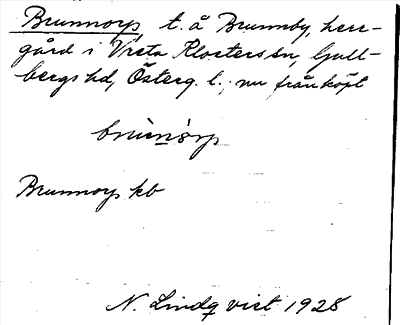 Brunnorp t. å Brunnby, herr-
gård i Vreta Klosters sn, Gull-
bergs hd, Österg. l.; nu frånköpt
brùnórp
Brunnorp kb
N. Lindqvist 1928